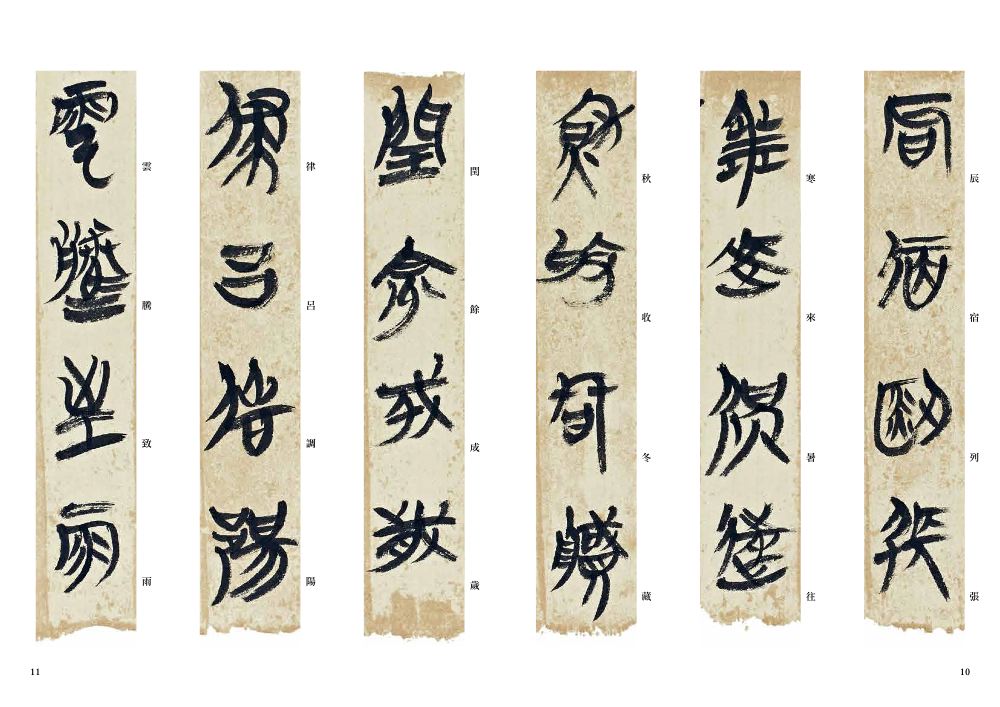 辰宿列張
寒來暑往
秋收冬藏
閏餘成歲
律呂調陽
雲騰致雨
10
11